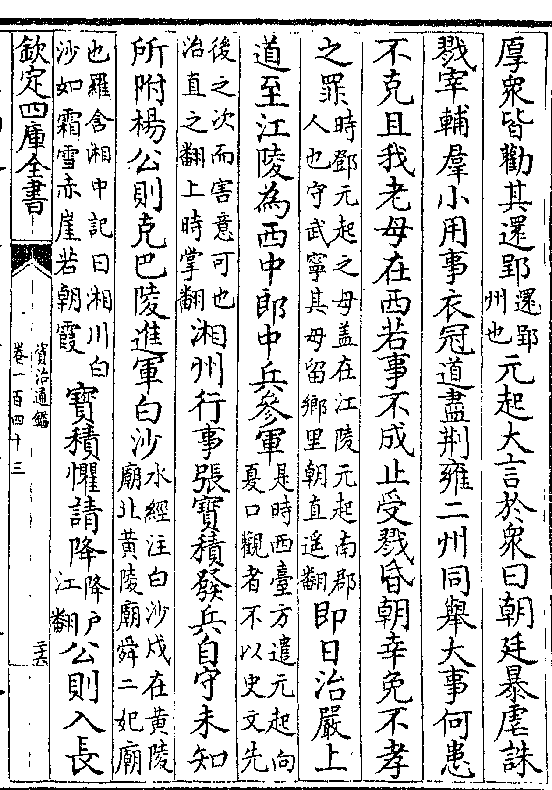 厚衆皆勸其還郢還郢州也元起大言於衆曰朝廷暴虐誅
戮宰輔羣小用事衣冠道盡荆雍二州同舉大事何患
不克且我老母在西若事不成止受戮昏朝幸免不孝
之罪時鄧元起之母盖在江陵元起南郡人也守武寧其母留鄉里朝直遥翻即日治嚴上
道至江陵為西中郎中兵參軍是時西臺方遣元起向夏口觀者不以史文先
後之次而害意可也治直之翻上時掌翻湘州行事張寶積發兵自守未知
所附楊公則克巴陵進軍白沙水經注白沙戍在黄陵廟北黄陵廟舜二妃廟
也羅含湘中記曰湘川白沙如霜雪赤崖若朝霞寶積懼請降降户江翻公則入長
欽定四庫全書
資治通鑑
卷一百四十三
三六